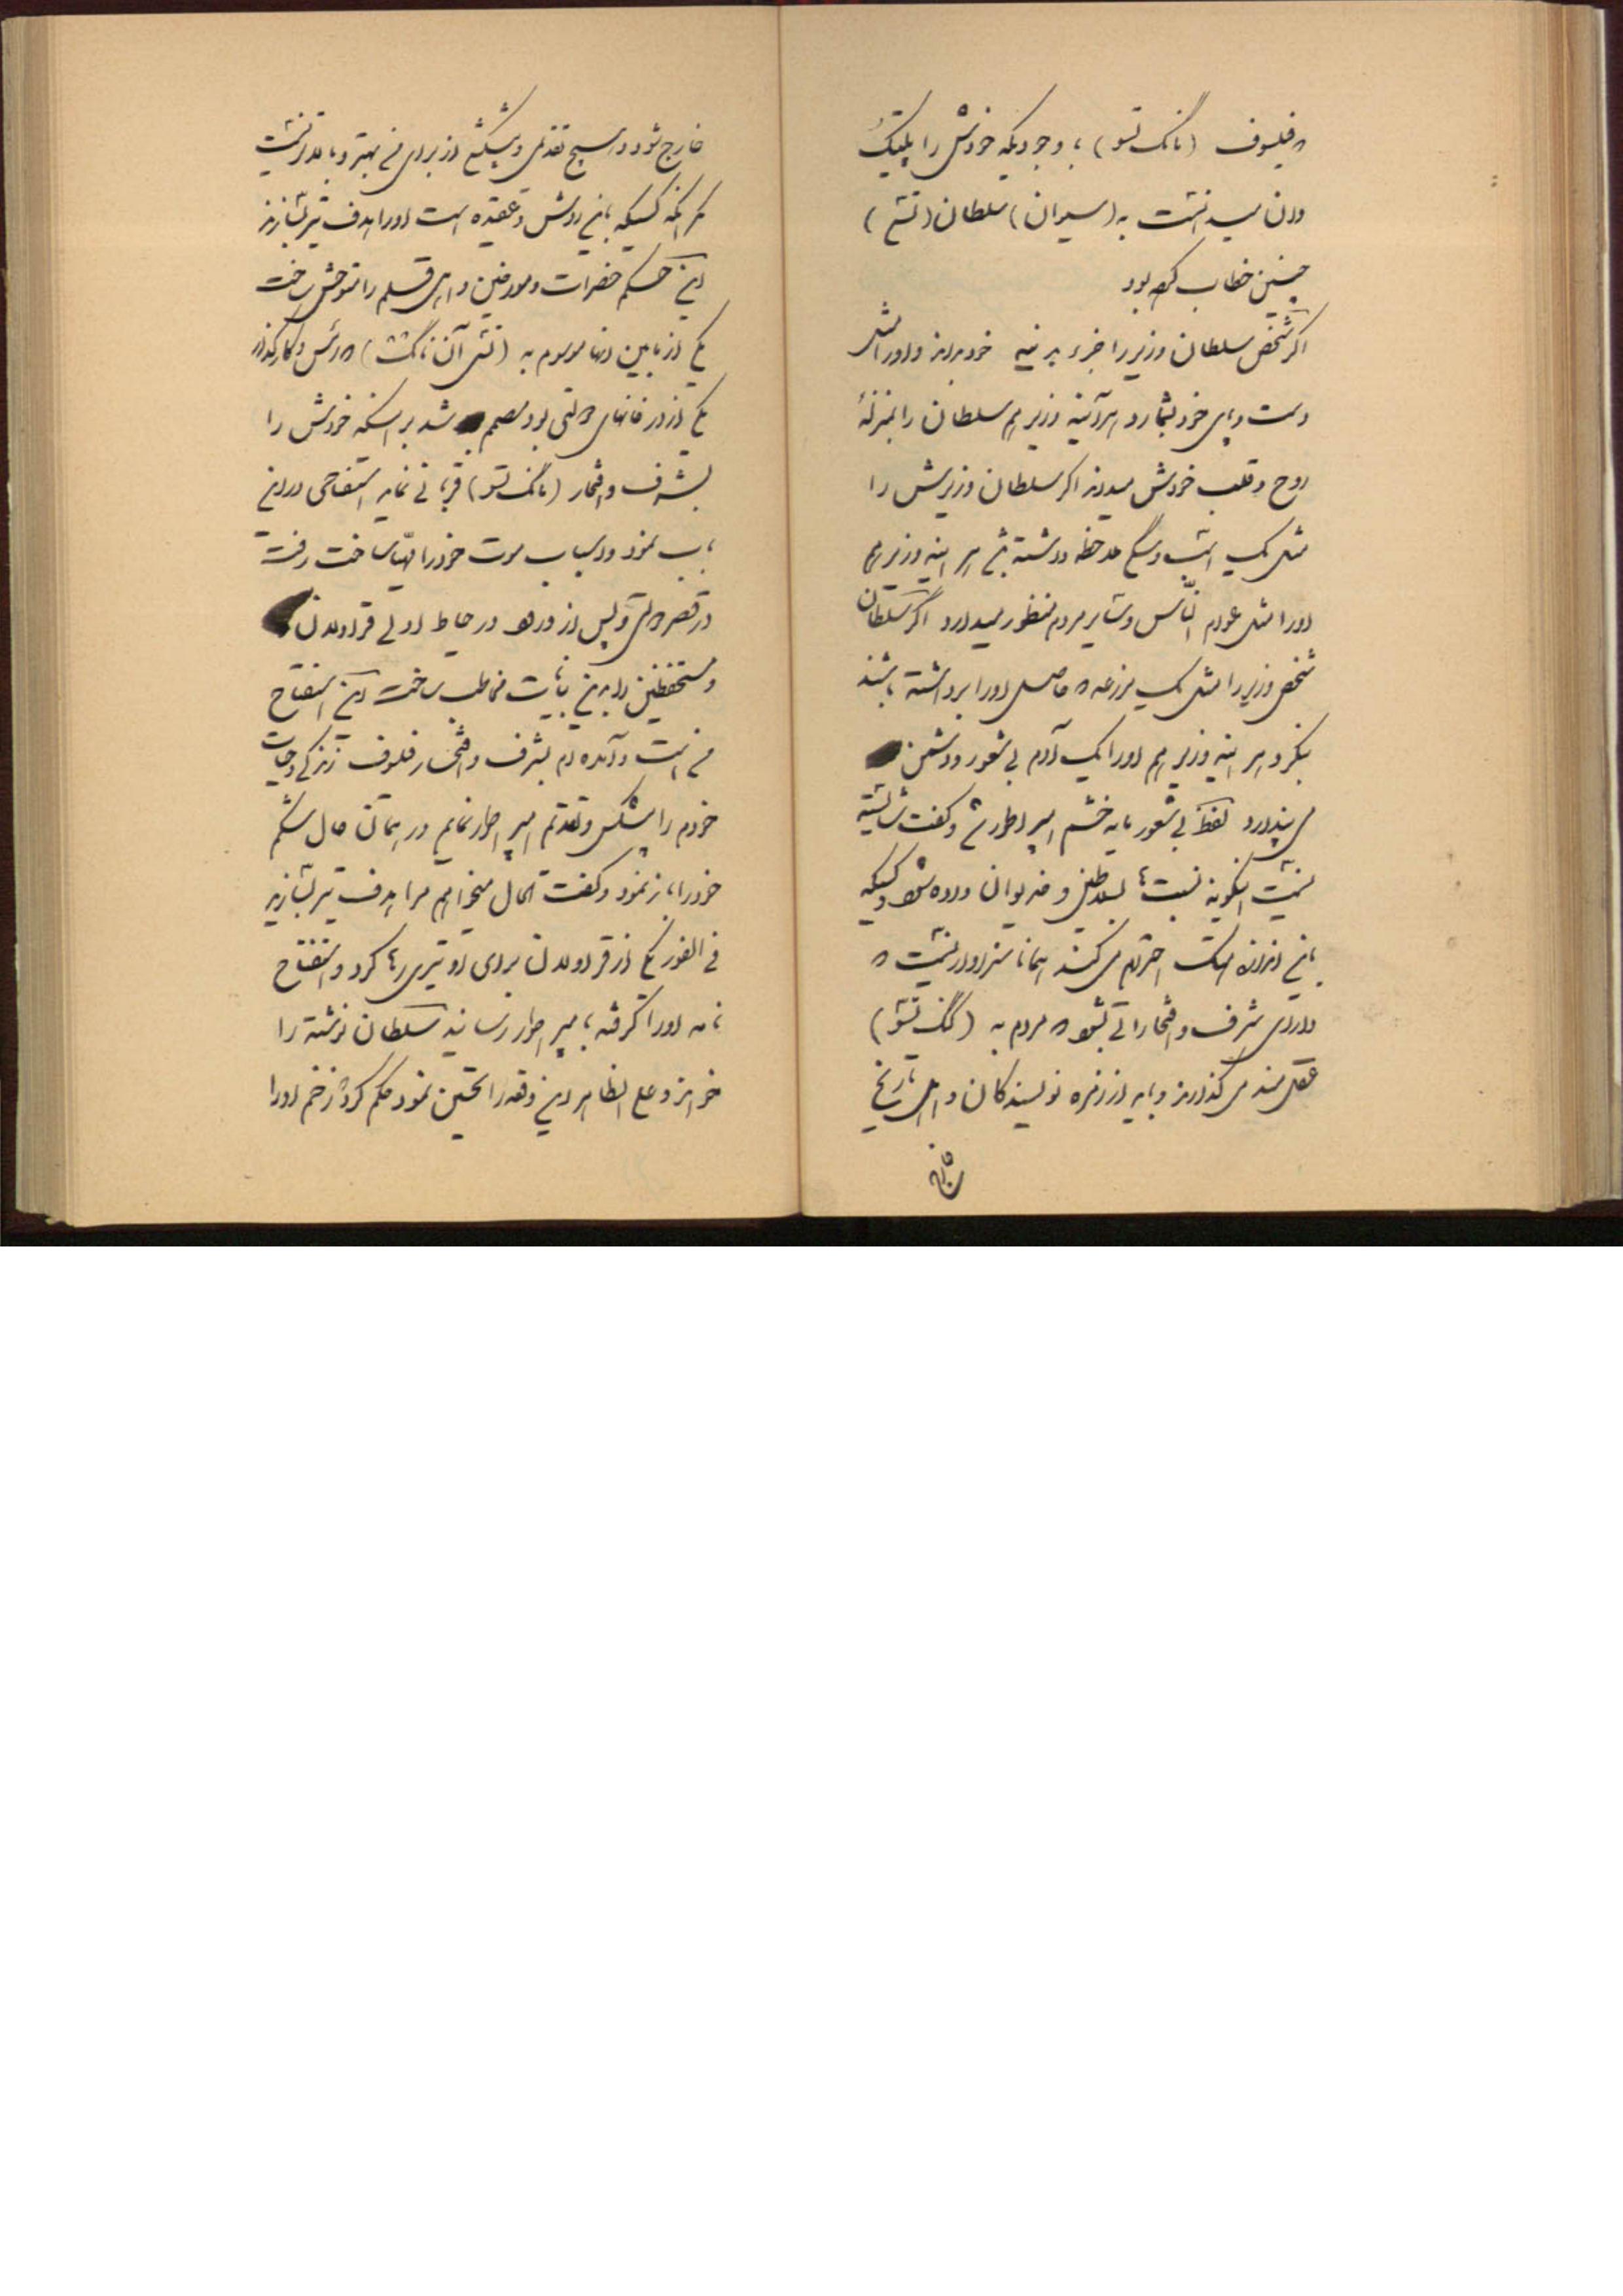 که فیلسوف (مانگ تسو) با وجودیکه خودش را پلتیک
دان میدانست به (سیوان) سلطان (تسی)
چنین خطاب کرده بود
اگر شخص سلطان وزیر را جزء بدنیه خود بداند و او را مثل
دست و پای خود بشمارد هر آینه وزیر هم سلطان را بمنزلهٔ
روح و قلب خودش میداند اگر سلطان وزیرش را
مثل یک اسب و سگی ملاحظه داشته باشد هر اینه وزیر هم
او را مثل عوام النّاس و سایر مردم منظور میدارد اگر سلطان
شخص وزیر را مثل یک مزرعه که حاصل او را برداشته باشند
بنگرد هر اینه وزیر هم او را یک آدم بی شعور و دشمن
می پندارد لفظ بی شعور مایه خشم امپراطور شد و گفت شایسته
نیست اینگونه نسبت ها بسلاطین و خدیوان داده شود و کسیکه
باین اندازه هتک احترام می کند همانا سزاوار نیست که
دارای شرف و افتخاراتی بشود که مردم به (کنگ تسو)
عقل مند می گذارند و باید از زمره نویسندگان و اهل تاریخ
خارج
خارج شود و هیچ تقدیمی و پیشکشی از برای من بهتر و بالاتر نیست
مگر آنکه کسیکه باین روش و عقیده است او را هدف تیر بسازند
این حکم حضرات و مورخین و اهل قلم را متوحش ساخت
یکی از مابین انها موسوم به (تسی آن تانگ) که رئیس و کارگذار
یکی از درخانهای دولتی بود مصمم شد بر اینکه خودش را
بشرف و افتخار (مانگ تسو) قربانی نماید استفتاحی در این
باب نمود و اسباب موت خود را مهیّا ساخت رفت
در قصر دولتی و پس از ورود در حیاط اولی قراولان
و مستحفظین را بدین بیانات مخاطب ساخت این استفتاح
من است و آمده ام بشرف و افتخار فیلسوف زندگی و حیات
خودم را پیشکش و تقدیم امپراطور نمایم در همان حال شکم
خود را باز نمود و گفت الحال میخواهم مرا هدف تیر بسازید
فی الفور یکی از قراولان برای او تیری رها کرد و استفتاح
نامه او را گرفته بامپراطور رسانید سلطان نوشته را
خواند و علی الظاهر این وقعه را تحسین نمود حکم کرد زخم او را